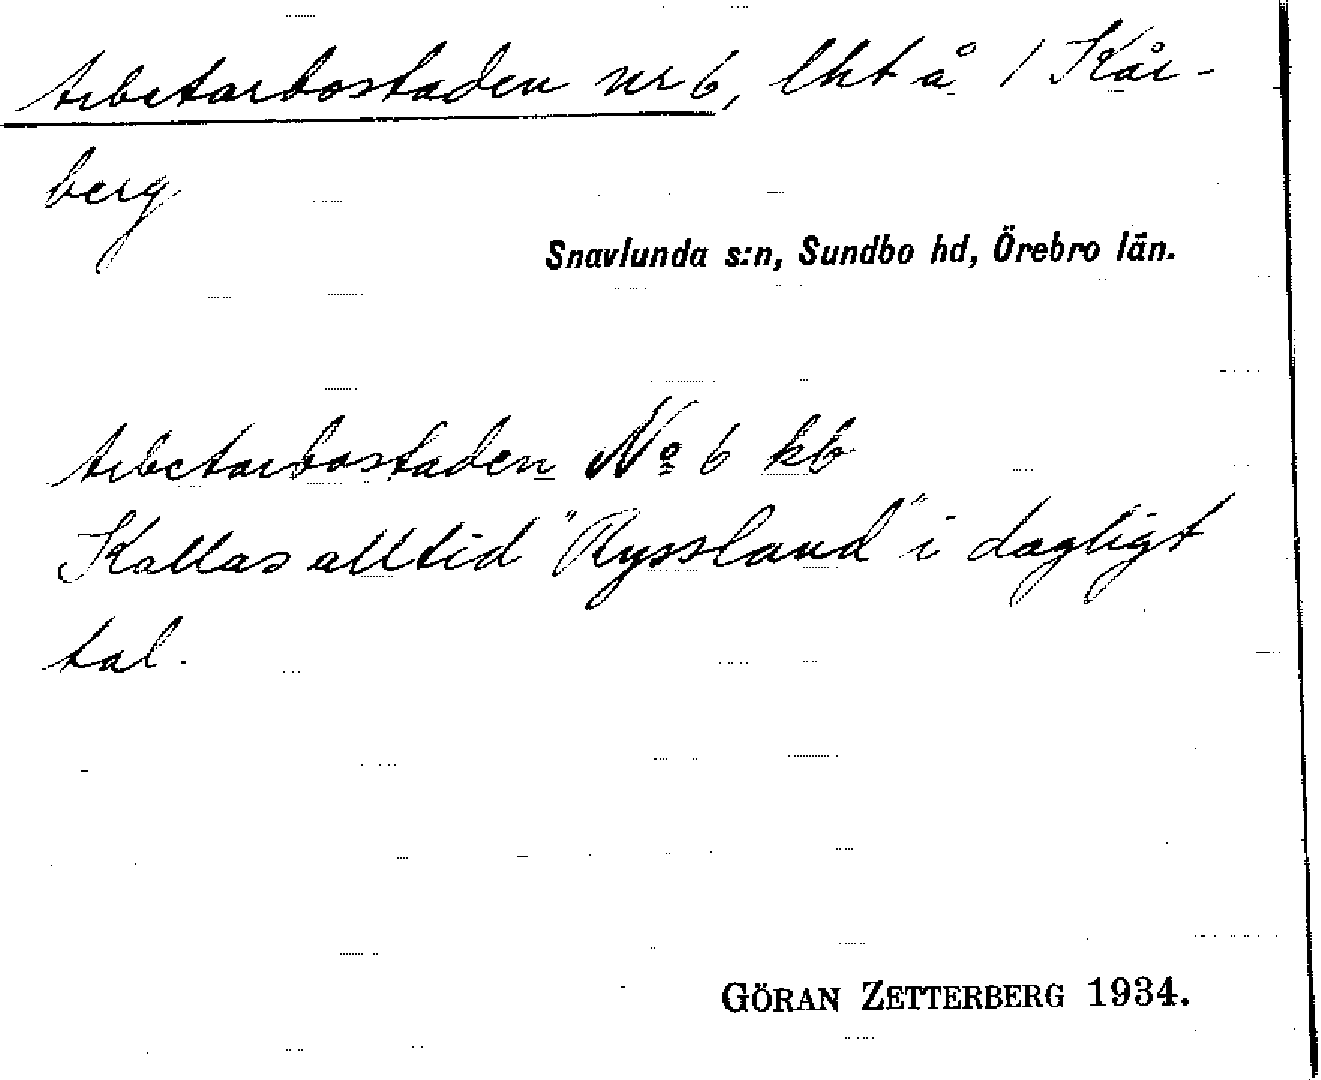 Arbetarbostaden nr 6, lht å 1 Kår-
berg
Snavlunda s:n, Sundbo hd, Örebro län.
Arbetarbostaden No 6 kb
Kallas alltid "Ryssland" i dagligt
tal.
GÖRAN ZETTERBERG 1934.